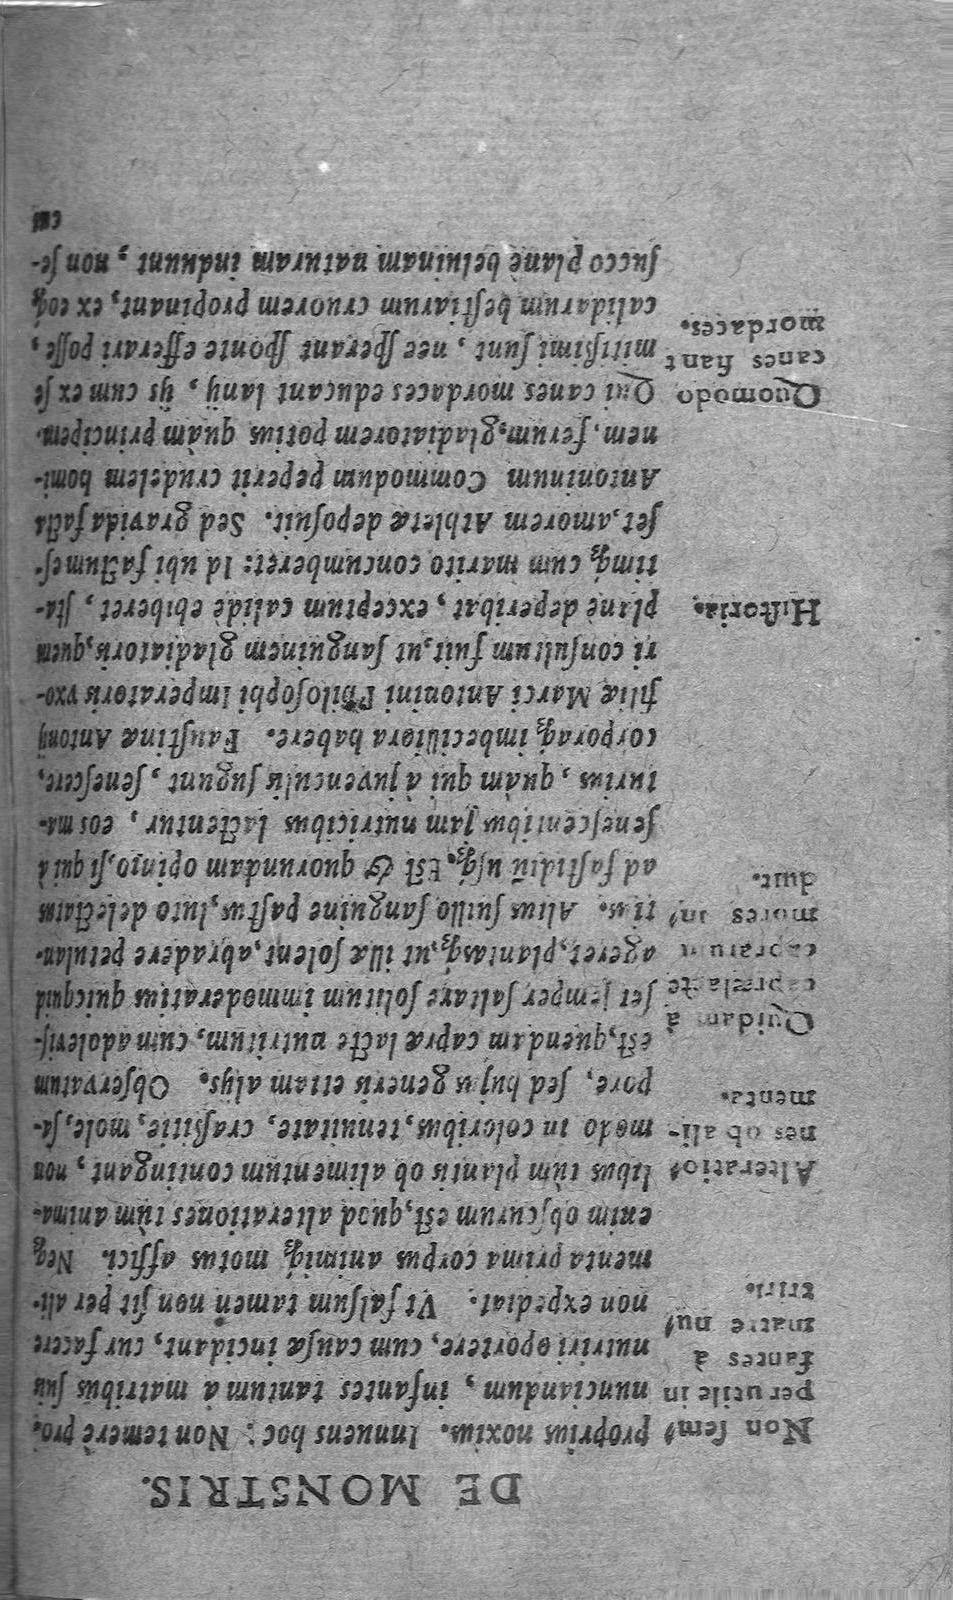 DE MONSTRIS.
proprius noxius. Innuens hoc: Non temerè pro-
nunciandum, infantes tantum à matribus ſuis
nutriri oportere, cum cauſæ incidant, cur facere
non expediat. Vt falſum tamen non ſit per ali-
menta prima corpus animiq́; motus affici. Neq;
enim obſcurum eſt, quod alterationes tùm anima-
libus tùm plantis ob alimentum contingant, non
modo in coloribus, tenuitate, craſſitie, mole, ſa-
pore, ſed hujus generis etiam alijs. Obſervatum
eſt, quendam capræ lacte nutritum, cum adoleviſ-
ſet ſemper ſaltare ſolitum immoderatius quicquid
ageret, plantasq́;, ut illæ ſolent, abradere petulan-
tius. Alius ſuillo ſanguine paſtus, luto delectatus
ad faſtidiũ uſq́;. Eſt & quorundam opinio, ſi qui à
ſeneſcentibus jam nutricibus lactentur, eos ma-
turius, quàm qui à juvenculis ſugunt, ſeneſcere,
corporaq́; imbecilliora habere. Fauſtinæ Antonij
filiæ Marci Antonini Philoſophi Imperatoris vxo-
ri conſultum fuit, ut ſanguinem gladiatoris, quem
planè deperibat, exceptum calidè ebiberet, ſta-
timq́; cum marito concumberet: Id ubi factum eſ-
ſet, amorem Athletæ depoſuit. Sed gravida facta
Antoninum Commodum peperit crudelem homi-
nem, ferum, gladiatorem potius quàm principem.
Qui canes mordaces educant lanij, ij cum ex ſe
mitiſſimi ſunt, nec ſperant ſponte efferari poſſe,
calidarum beſtiarum cruorem propinant, ex eoq́;
ſucco planè beluinam naturam induunt, non ſe-
cus
Non ſem-
per utile in
fantes à
matre nu-
triri.
Alteratio-
nes ob ali-
menta.
Quidam à
capræ lacte
caprarum
mores in-
duit.
Hiſtoria.
Quomodo
canes fiant
mordaces.